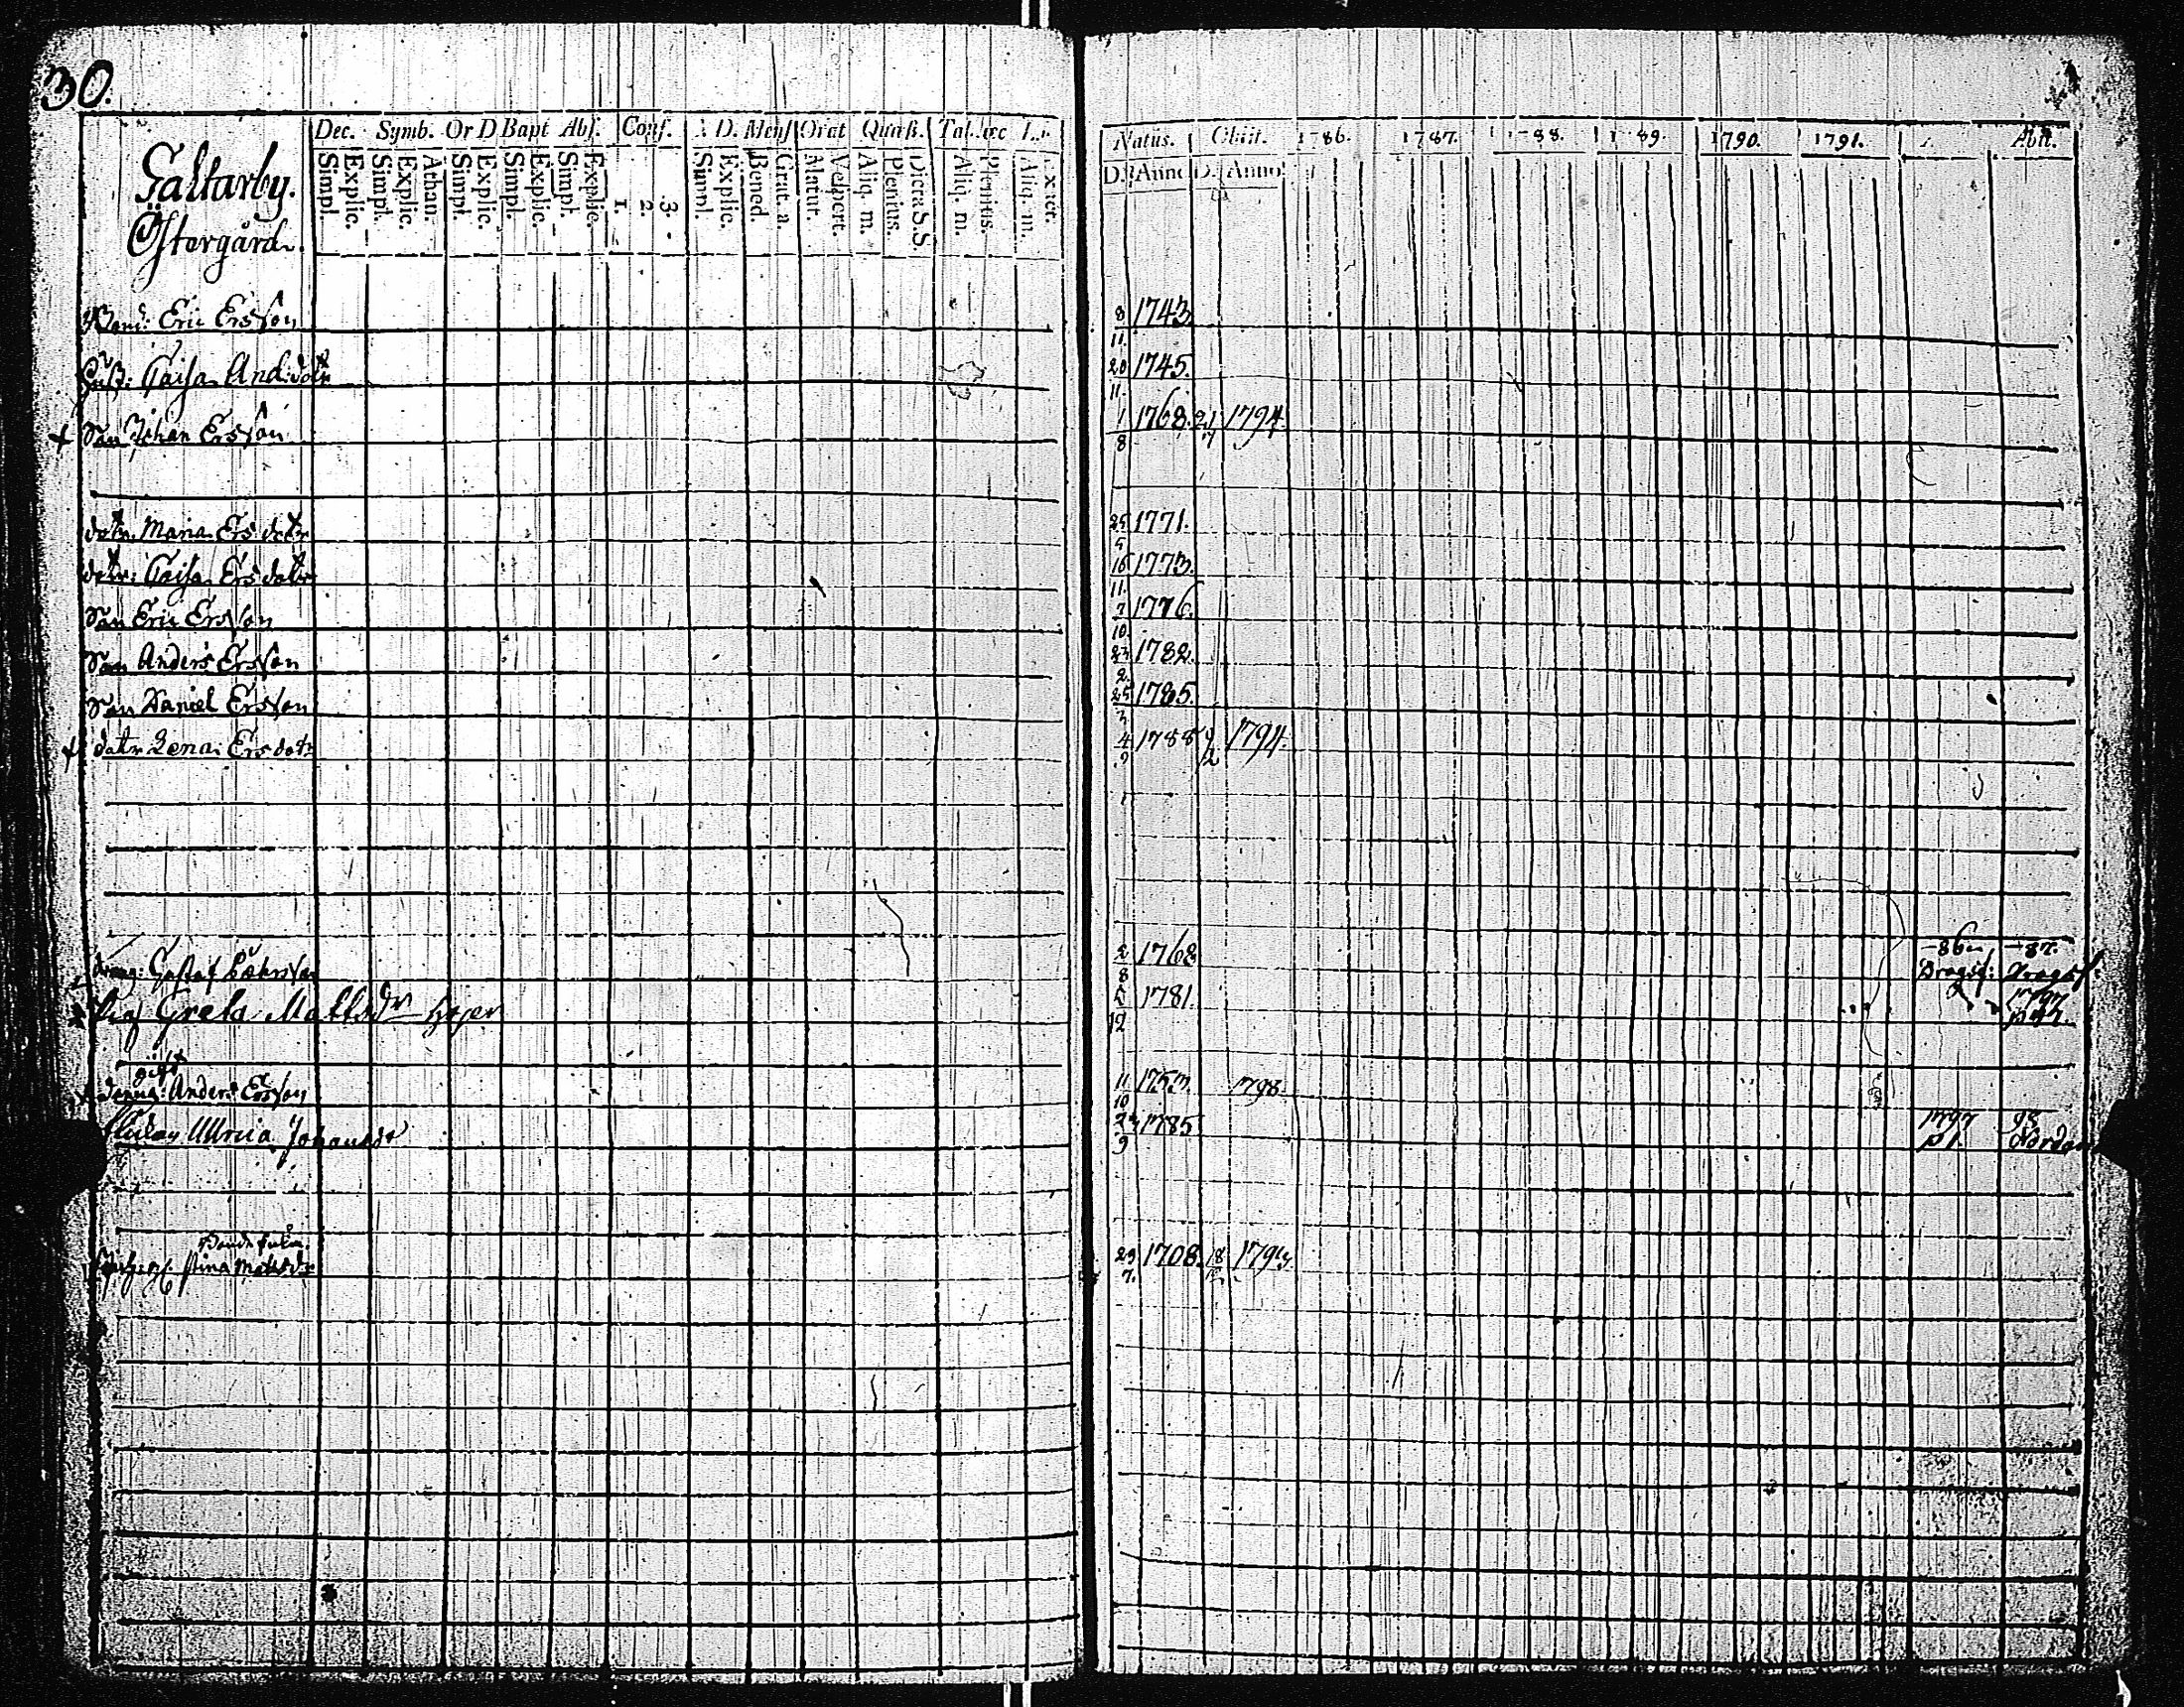 30.
Galtarby.
Östergård.
Dec. Symb. Or D Bapt Abs. Conf. D. Mens Orat Quæst. Tab. œc
Simpl. Explic. Simpl. Explic. Athan. Simpl. Explic. Simpl. Explic. Simpl. Explic. 1. 2. 3. Simpl. Explic. Bened. Grat. a. Matut. Vespert. Aliq. m. Plenius. Dicta S.S. Aliq. m. Plenius. Aliq. m.
Natus. Obiit. 1786. 1787. 1788. 1789. 1790. 1791. Abit.
D. Anno D. Anno
Bond: Eric Ersson 8 11. 1743
Hust: Caisa And:dotr 20 11. 1745.
+ Son Johan Ersson 1 8 1768. 21 1794.
dotr. Maria Ersdotr 25 5 1771.
dotr: Caisa Ersdotr 16 11. 1773.
Son Eric Ersson 7 10. 1776.
Son Anders Ersson 23 2. 1782.
Son Daniel Ersson 25 3 1785.
+ dotr Lena Ersdotr 4 1788 9 12 1794.
dräng: Gustaf 2 8 1768 -86 Dragsf: -87. Dragsf:
Greta Mattsdr 12 1781. 1797
gift
dräng: Anders Ersson 11 10 1753. 1798.
Flickan Maria Johansdr 9 1785 1797 p 1. 98 Nordan
Stina Mattsdr 29 7. 1708. 18 179